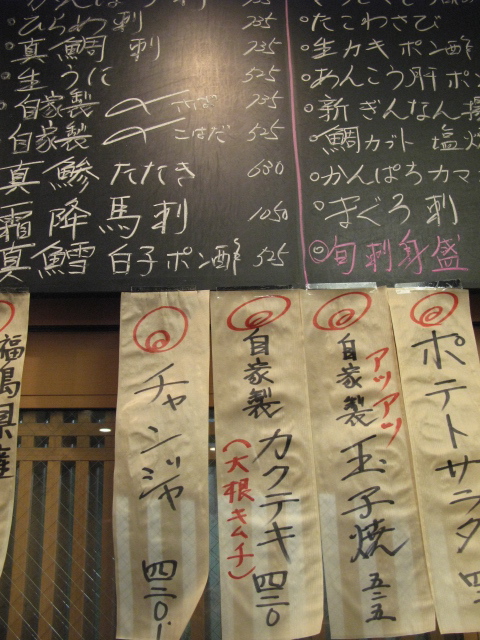 ひらめ刺 735
真鯛刺 735
生うに 525
自家製 〆さば 735
自家製 〆こはだ 525
真鯵たたき 630
霜降馬刺 1050
真鱈白子ポン酢 525
たこわさび
生カキポン酢
あんこう肝ポン
新ぎんなん
鯛カブト 塩焼
かんぱちカマ
まぐろ刺
旬刺身盛
福島県産
チャンジャ 四二〇
自家製 カクテキ 四二〇
(大根キムチ)
アツアツ
自家製 玉子焼 五二五
ポテトサラダ